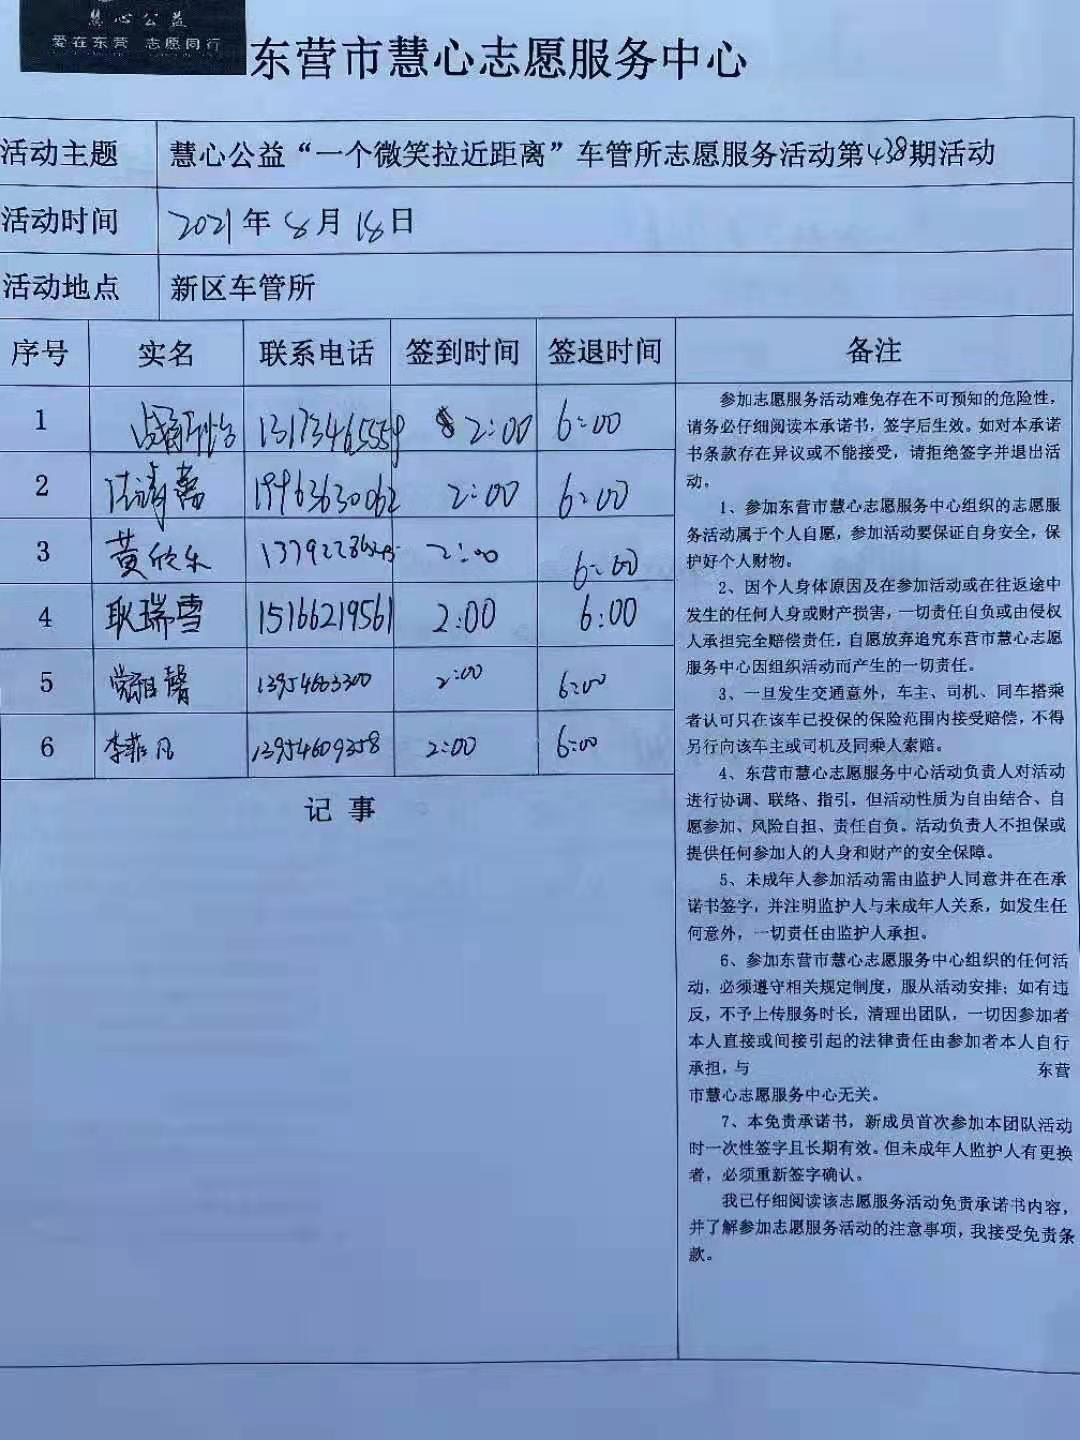 慧心公益
爱在东营 志愿同行
东营市慧心志愿服务中心
活动主题 慧心公益“一个微笑拉近距离”车管所志愿服务活动第438期活动
活动时间 2021年8月18日
活动地点 新区车管所
序号 实名 联系电话 签到时间 签退时间 备注
1 13173465559 2:00 6:00
2 19963630062 2:00 6:00
3 黄欣乐 2:00 6:00
4 耿瑞雪 15166219561 2:00 6:00
5 13954603300 2:00 6:00
6 李菲凡 13954609358 2:00 6:00
记 事
参加志愿服务活动难免存在不可预知的危险性，
请务必仔细阅读本承诺书，签字后生效。如对本承诺
书条款存在异议或不能接受，请拒绝签字并退出活
动。
1、参加东营市慧心志愿服务中心组织的志愿服
务活动属于个人自愿，参加活动要保证自身安全，保
护好个人财物。
2、因个人身体原因及在参加活动或在往返途中
发生的任何人身或财产损害，一切责任自负或由侵权
人承担完全赔偿责任，自愿放弃追究东营市慧心志愿
服务中心因组织活动而产生的一切责任。
3、一旦发生交通意外，车主、司机、同车搭乘
者认可只在该车已投保的保险范围内接受赔偿，不得
另行向该车主或司机及同乘人索赔。
4、东营市慧心志愿服务中心活动负责人对活动
进行协调、联络、指引，但活动性质为自由结合、自
愿参加、风险自担、责任自负。活动负责人不担保或
提供任何参加人的人身和财产的安全保障。
5、未成年人参加活动需由监护人同意并在在承
诺书签字，并注明监护人与未成年人关系，如发生任
何意外，一切责任由监护人承担。
6、参加东营市慧心志愿服务中心组织的任何活
动，必须遵守相关规定制度，服从活动安排；如有违
反，不予上传服务时长，清理出团队，一切因参加者
本人直接或间接引起的法律责任由参加者本人自行
承担，与 东营
市慧心志愿服务中心无关。
7、本免责承诺书，新成员首次参加本团队活动
时一次性签字且长期有效。但未成年人监护人有更换
者，必须重新签字确认。
我已仔细阅读该志愿服务活动免责承诺书内容，
并了解参加志愿服务活动的注意事项，我接受免责条
款。